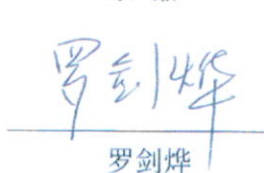 罗剑烨
罗剑烨